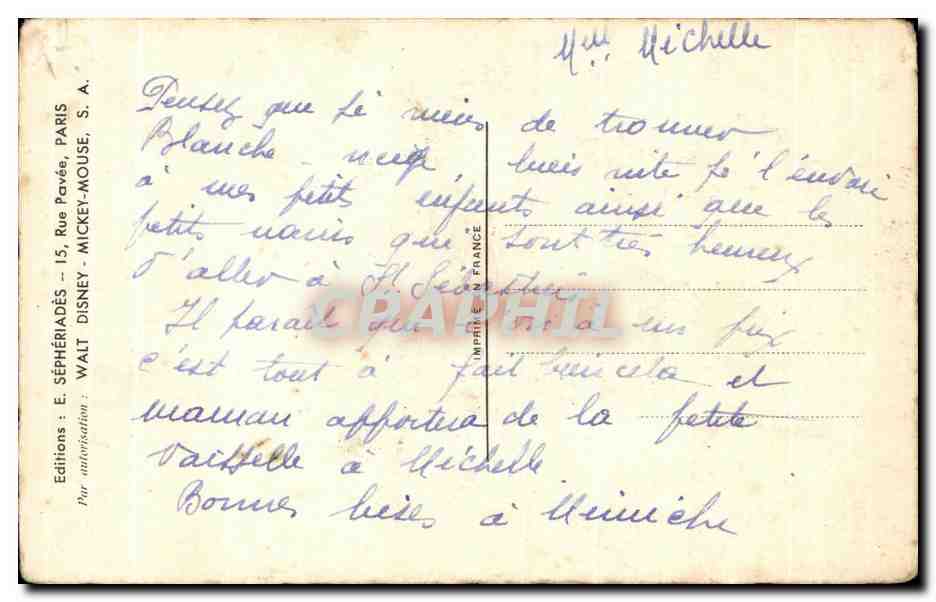 Mlle Michelle
Pensez que jé viens de trouver
Blanche - neige, bien vite jé l'envoie
à mes petits enfants ainsi que les
petits nains qui sont très heureux
d'aller à St Sébastien
Il parait que on a un prix
c'est tout à fait bien cela et
maman apportera de la petite
vaisselle à Michelle
Bonnes bises à Mimiche
Editions : E. SÉPHÉRIADÈS - 15, Rue Pavée, PARIS
Par autorisation : WALT DISNEY - MICKEY-MOUSE, S. A.
IMPRIMÉ EN FRANCE
CPAPHIL